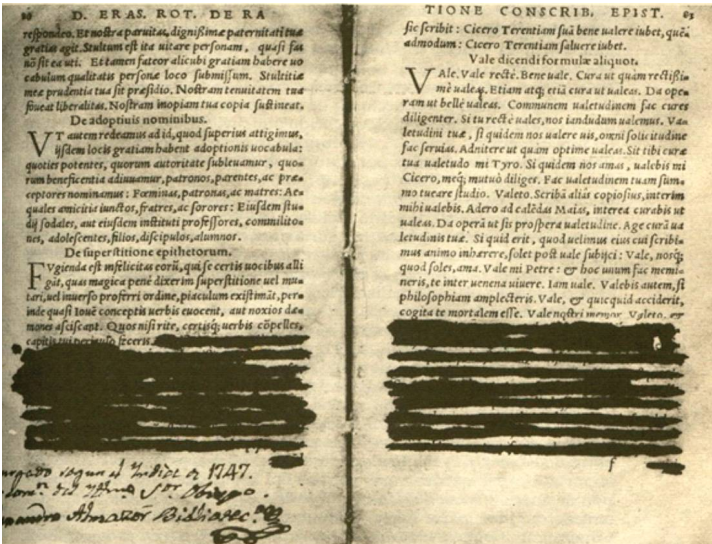 D. ERAS. ROT. DE RA
respondeo. Et nostra paruitas, dignißimæ paternitati tuæ
gratias agit. Stultum est ita uitare personam, quasi fas
nõ sit ea uti: Et tamen fateor alicubi gratiam habere uo
cabulum qualitatis personæ loco submissum. Stultitiæ
meæ prudentia tua sit præsidio. Nostram tenuitatem tua
foueat liberalitas. Nostram inopiam tua copia sustineat.
De adoptiuis nominibus.
VT autem redeamus ad id, quod superius attigimus,
ijsdem locis gratiam habent adoptionis uocabula:
quoties potentes, quorum autoritate subleuamur, quo-
rum beneficentia adiuuamur, patronos, parentes, ac præ-
ceptores nominamus: Fœminas, patronas, ac matres: Ae-
quales amicitia iunctos, fratres, ac sorores: Eiusdem stu-
dij sodales, aut eiusdem instituti professores, commilito-
nes, adolescentes, filios, discipulos, alumnos.
De superstitione epithetorum.
FVgienda est infelicitas eorũ, qui se certis uocibus alli
gãt, quas magica penè dixerim superstitione uel mu-
tari, uel inuerso proferri ordine, piaculum existimãt, per-
inde quasi Iouẽ conceptis uerbis euocent, aut noxios dæ-
mones asciscant. Quos nisi rite, certisq; uerbis cõpelles,
capitis tui periculo feceris.
1747.
TIONE CONSCRIB. EPIST. 85
sic scribit: Cicero Terentiam suã bene ualere iubet, quẽ
admodum: Cicero Terentiam saluere iubet.
Vale dicendi formulæ aliquot.
VAle. Vale rectè. Bene uale. Cura ut quàm rectißi-
mè ualeas. Etiam atq; etiã cura ut ualeas. Da ope-
ram ut bellè ualeas. Communem ualetudinem fac cures
diligenter. Si tu rectè uales, nos iandudum ualemus. Va-
letudini tuæ, si quidem nos ualere uis, omni solicitudine
fac seruias. Adnitere ut quàm optime ualeas. Sit tibi curæ
tua ualetudo mi Tyro. Si quidem nos amas, ualebis mi
Cicero, meq; mutuò diliges. Fac ualetudinem tuam sum-
mo tueare studio. Valeto. Scribã aliàs copiosius, interim
mihi ualebis. Adero ad calẽdas Maias, interea curabis ut
ualeas. Da operã ut sis prospera ualetudine. Age curã ua
letudinis tuæ. Si quid erit, quod uelimus eius cui scribi-
mus animo inhærere, solet post uale subijci: Vale, norisq;
quod soles, ama. Vale mi Petre: & hoc unum fac memi-
neris, te inter uenena uiuere. Iam uale. Valebis autem, si
philosophiam amplecteris. Vale, & quicquid acciderit,
cogita te mortalem esse. Vale nostri memor. Valeto, &